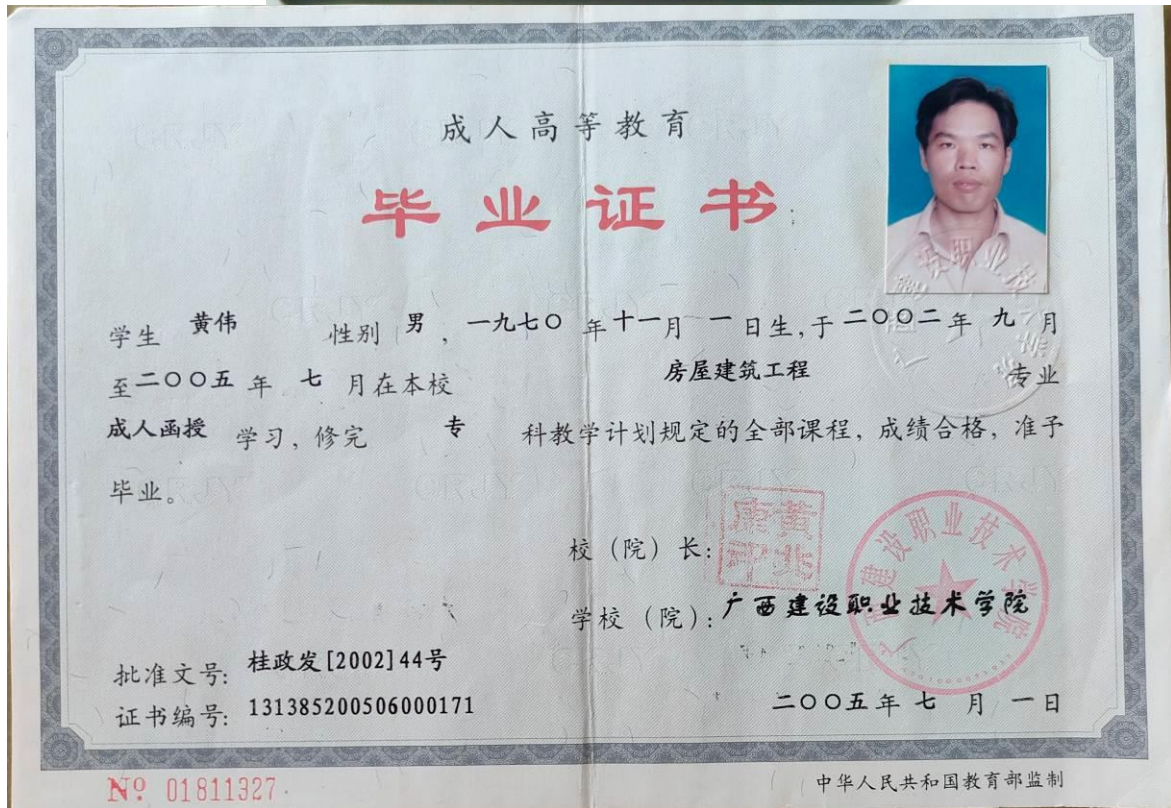 成人高等教育
毕业证书
学生 黄伟 性别 男，一九七〇 年十一月 一 日生，于 二〇〇二 年 九 月
至二〇〇五 年 七 月在本校 房屋建筑工程 专业
成人函授 学习，修完 专 科教学计划规定的全部课程，成绩合格，准予
毕业。
校（院）长：
学校（院）：广西建设职业技术学院
广西建设职业技术学院
批准文号：桂政发[2002]44号
证书编号：131385200506000171
二〇〇五 年 七 月 一 日
№ 01811327
中华人民共和国教育部监制